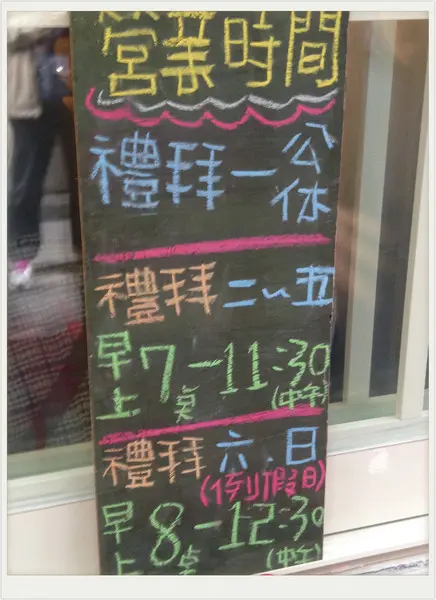 營業時間
禮拜一 公休
禮拜二~五
早上7点-11:30(中午)
禮拜六.日
(例假日)
早上8点-12:30(中午)